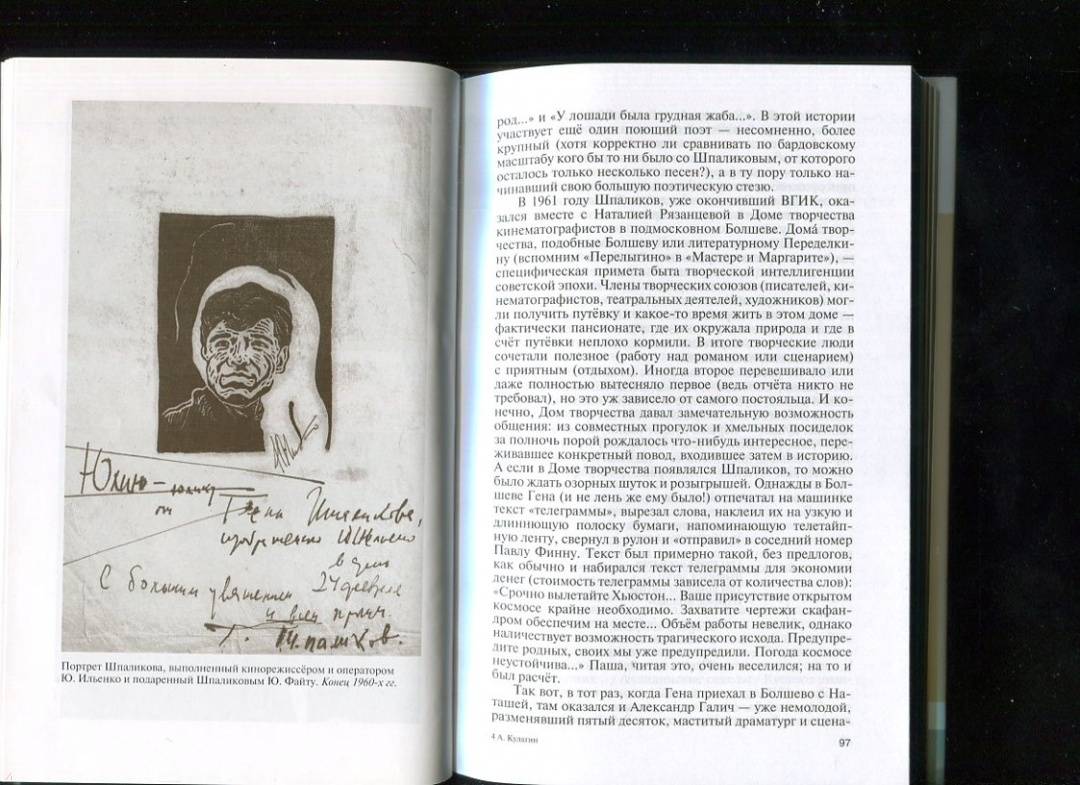 Юлию —
от
Гены Шпаликова,
изображение Ю. Ильенко
в день
24 февраля
С большим уважением
и всем проч.
Г. Шпаликов.
Портрет Шпаликова, выполненный кинорежиссёром и оператором
Ю. Ильенко и подаренный Шпаликовым Ю. Файту. Конец 1960-х гг.
род...» и «У лошади была грудная жаба...». В этой истории
участвует ещё один поющий поэт — несомненно, более
крупный (хотя корректно ли сравнивать по бардовскому
масштабу кого бы то ни было со Шпаликовым, от которого
осталось только несколько песен?), а в ту пору только на-
чинавший свою большую поэтическую стезю.
В 1961 году Шпаликов, уже окончивший ВГИК, ока-
зался вместе с Наталией Рязанцевой в Доме творчества
кинематографистов в подмосковном Болшеве. Домá твор-
чества, подобные Болшеву или литературному Переделки-
ну (вспомним «Перелыгино» в «Мастере и Маргарите»), —
специфическая примета быта творческой интеллигенции
советской эпохи. Члены творческих союзов (писателей, ки-
нематографистов, театральных деятелей, художников) мог-
ли получить путёвку и какое-то время жить в этом доме —
фактически пансионате, где их окружала природа и где в
счёт путёвки неплохо кормили. В итоге творческие люди
сочетали полезное (работу над романом или сценарием)
с приятным (отдыхом). Иногда второе перевешивало или
даже полностью вытесняло первое (ведь отчёта никто не
требовал), но это уж зависело от самого постояльца. И ко-
нечно, Дом творчества давал замечательную возможность
общения: из совместных прогулок и хмельных посиделок
за полночь порой рождалось что-нибудь интересное, пере-
живавшее конкретный повод, входившее затем в историю.
А если в Доме творчества появлялся Шпаликов, то можно
было ждать озорных шуток и розыгрышей. Однажды в Бол-
шеве Гена (и не лень же ему было!) отпечатал на машинке
текст «телеграммы», вырезал слова, наклеил их на узкую и
длиннющую полоску бумаги, напоминающую телетайп-
ную ленту, свернул в рулон и «отправил» в соседний номер
Павлу Финну. Текст был примерно такой, без предлогов,
как обычно и набирался текст телеграммы для экономии
денег (стоимость телеграммы зависела от количества слов):
«Срочно вылетайте Хьюстон... Ваше присутствие открытом
космосе крайне необходимо. Захватите чертежи скафан-
дром обеспечим на месте... Объём работы невелик, однако
наличествует возможность трагического исхода. Предупре-
дите родных, своих мы уже предупредили. Погода космосе
неустойчива...» Паша, читая это, очень веселился; на то и
был расчёт.
Так вот, в тот раз, когда Гена приехал в Болшево с На-
ташей, там оказался и Александр Галич — уже немолодой,
разменявший пятый десяток, маститый драматург и сцена-
4 А. Кулагин
97